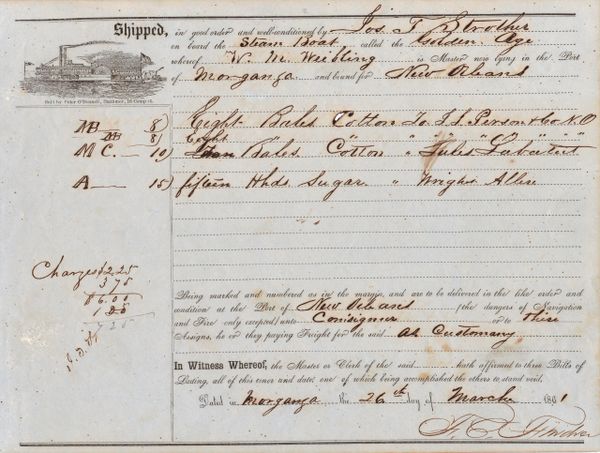 Shipped, in good order and well-conditioned by Jos T Strother
on board the Steam Boat called the Golden Age
whereof W. M. Wiebling is Master now lying in the Port
of Morganza and bound for New Orleans
Sold by Peter O'Donnell, Stationer, 58 Camp st.
MB 8) Eight Bales Cotton To J. S. Person & Co N.O
MB 8) Eight " " " " "
MC. 10) Bales Cotton " Jules
A 15) fifteen Hhds Sugar " Wright Allen
Charges $2.25
3 75
$6.00
1 20
7 20
Being marked and numbered as in the margin, and are to be delivered in the like order and
condition at the Port of New Orleans (the dangers of Navigation
and Fire only excepted) unto Consignees or to their
Assigns, he or they paying Freight for the said At Customary
In Witness Whereof, the Master or Clerk of the said hath affirmed to three Bills of
Lading, all of this tenor and date, one of which being accomplished the others to stand void.
Dated in Morganza the 26th day of March 1861